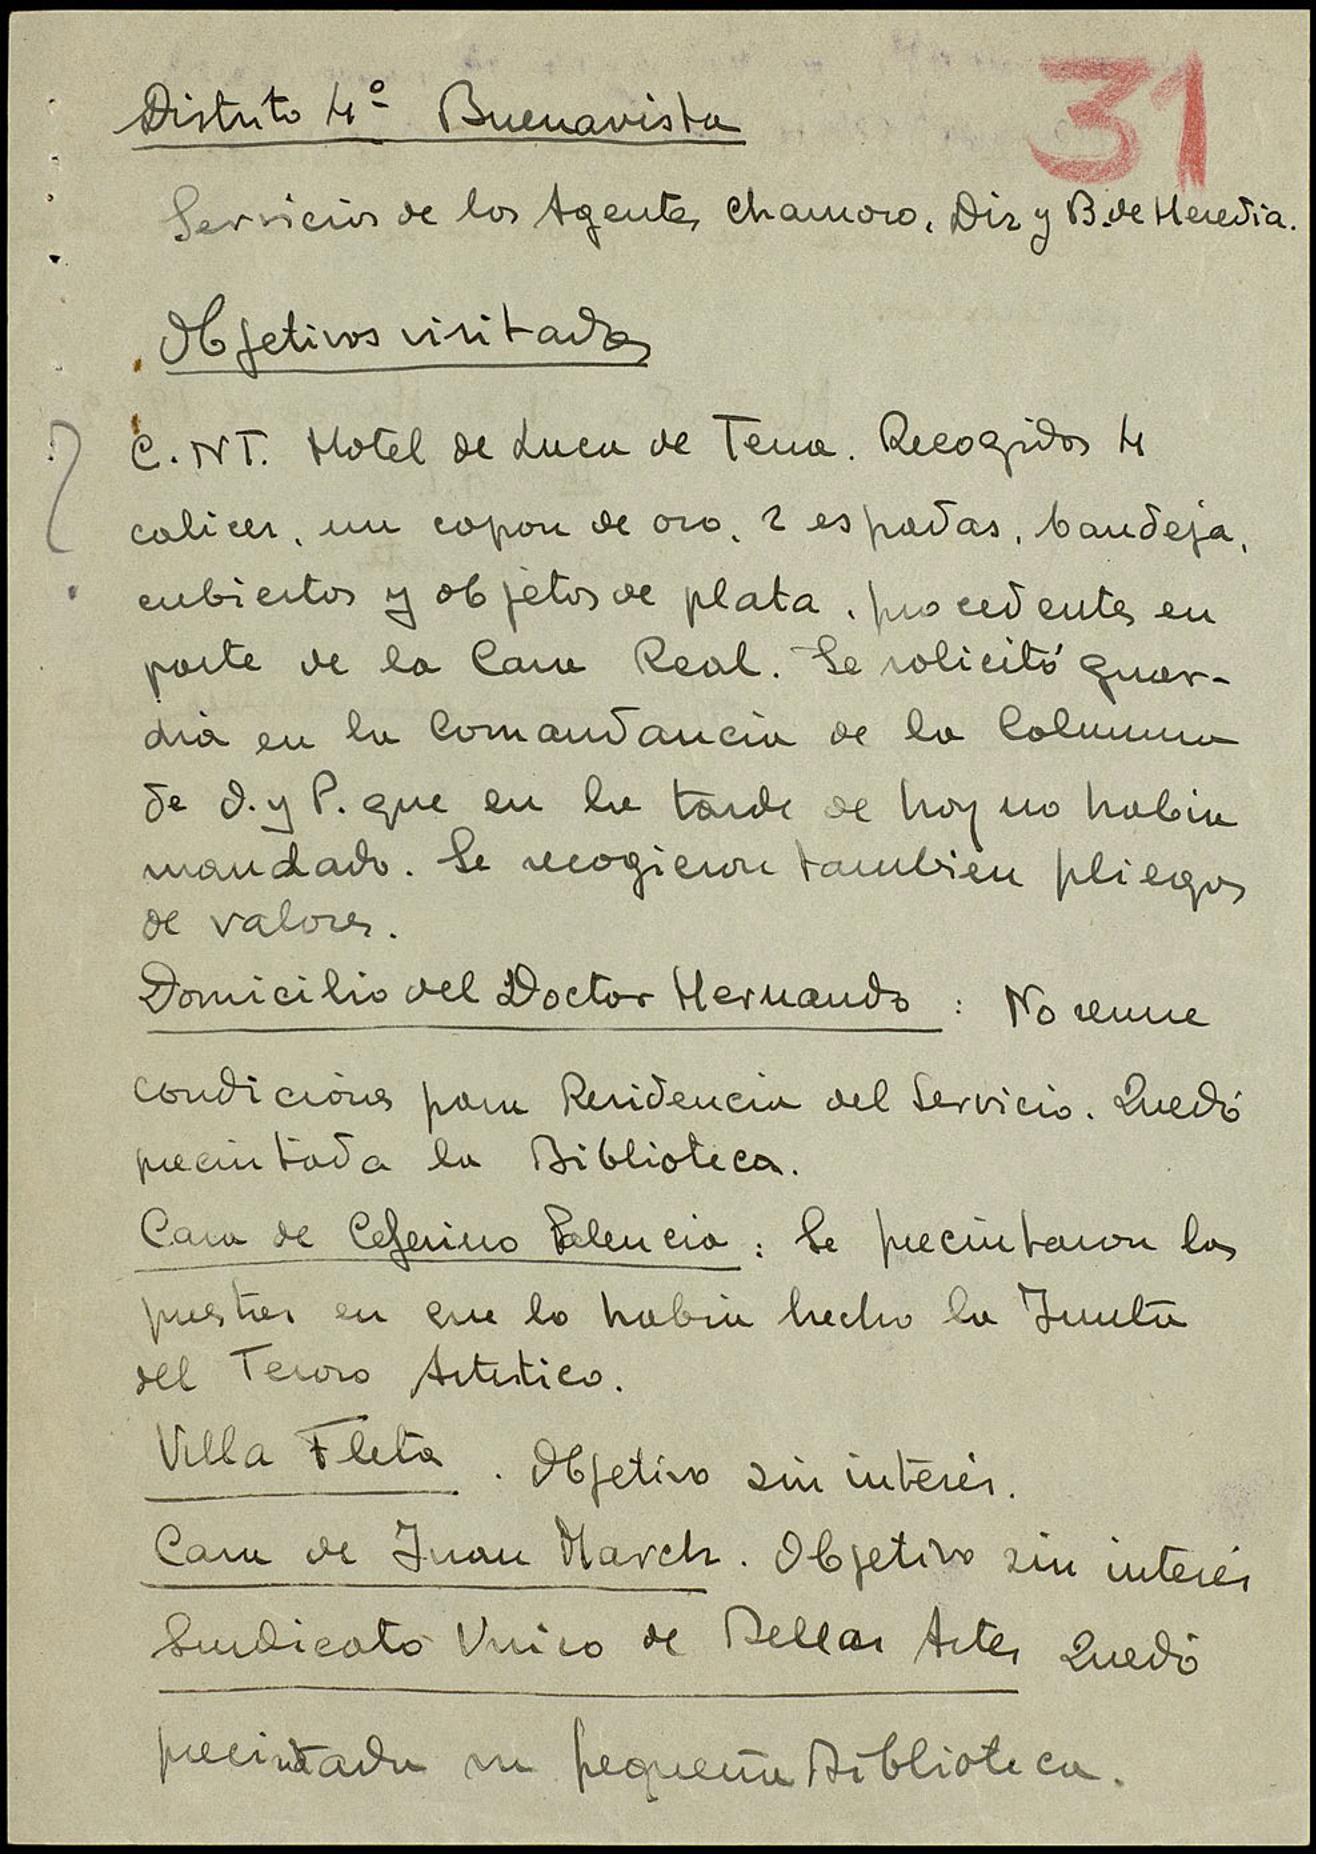 31
Distrito 4º Buenavista
Servicios de los Agentes Chamorro, Diz y B. de Heredia.
Objetivos visitados
? C.NT. Hotel de Luca de Tena. Recogidos 4
calices, un copon de oro, 2 espadas, bandeja,
cubiertos y objetos de plata, procedentes en
parte de la Casa Real. Se solicitó guar-
dia en la Comandancia de la Columna
de O. y P. que en la tarde de hoy no habia
mandado. Se recogieron tambien pliegos
de valores.
Domicilio del Doctor Hernando : No reune
condiciones para Residencia del Servicio. Quedó
precintada la Biblioteca.
Casa de Ceferino Palencia : Se precintaron las
puertas en que lo habia hecho la Junta
del Tesoro Artistico.
Villa Fleta . Objetivo sin interés.
Casa de Juan March. Objetivo sin interés
Sindicato Unico de Bellas Artes Quedó
precintada su pequeña Biblioteca.